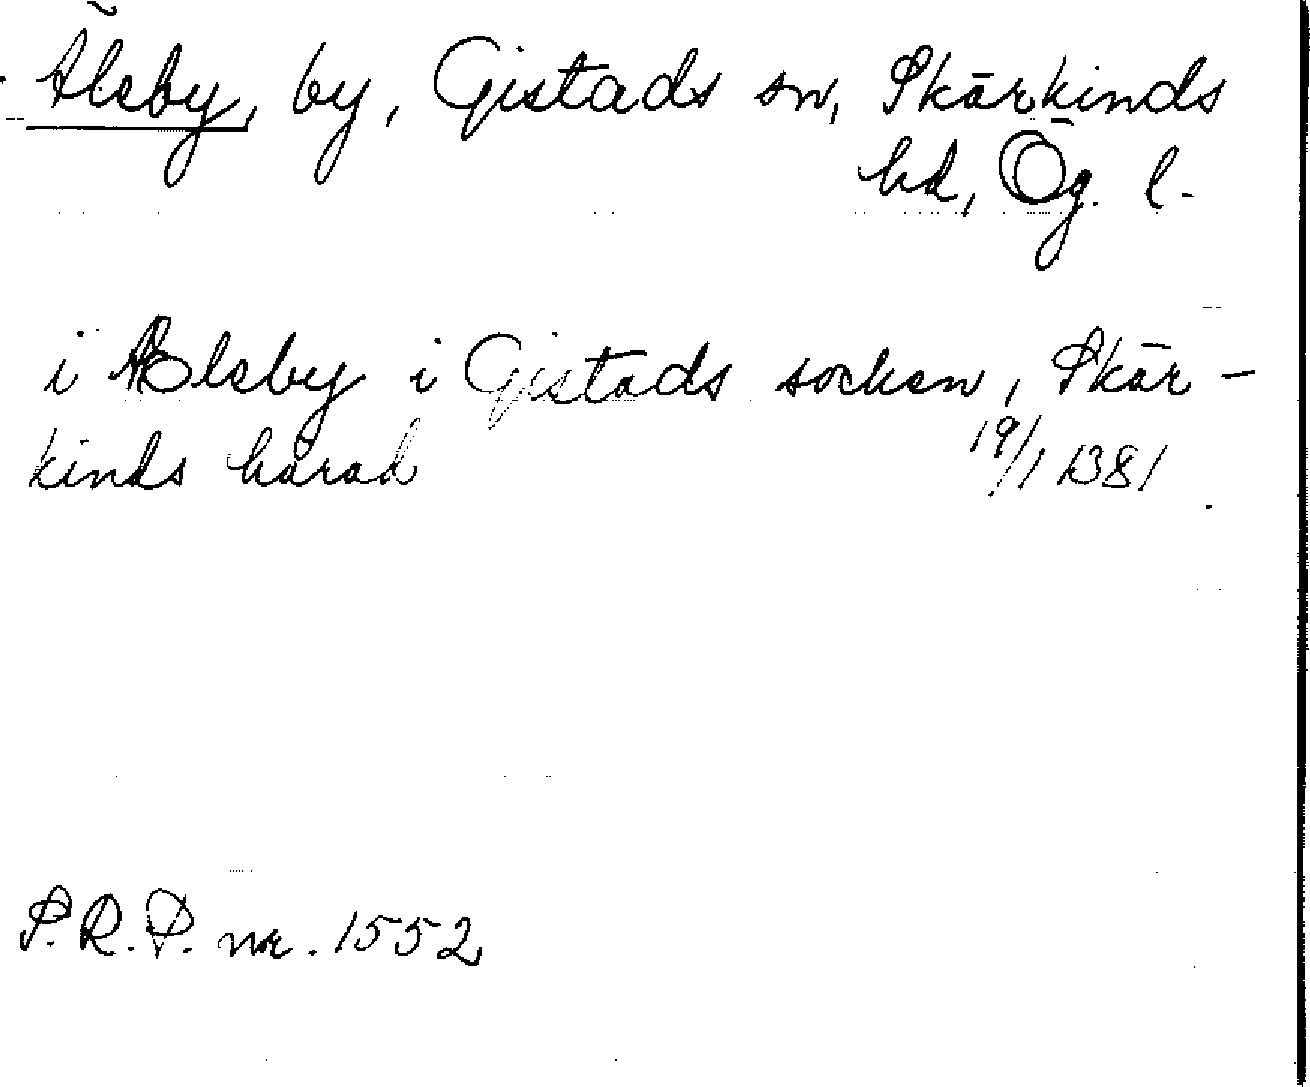 Älsby, by, Gistads sn, Skärkinds
hd, Ög. l.
i Ælsby i Gistads socken, Skär-
kinds härad 19/1 1381
S.R.P. nr. 1552